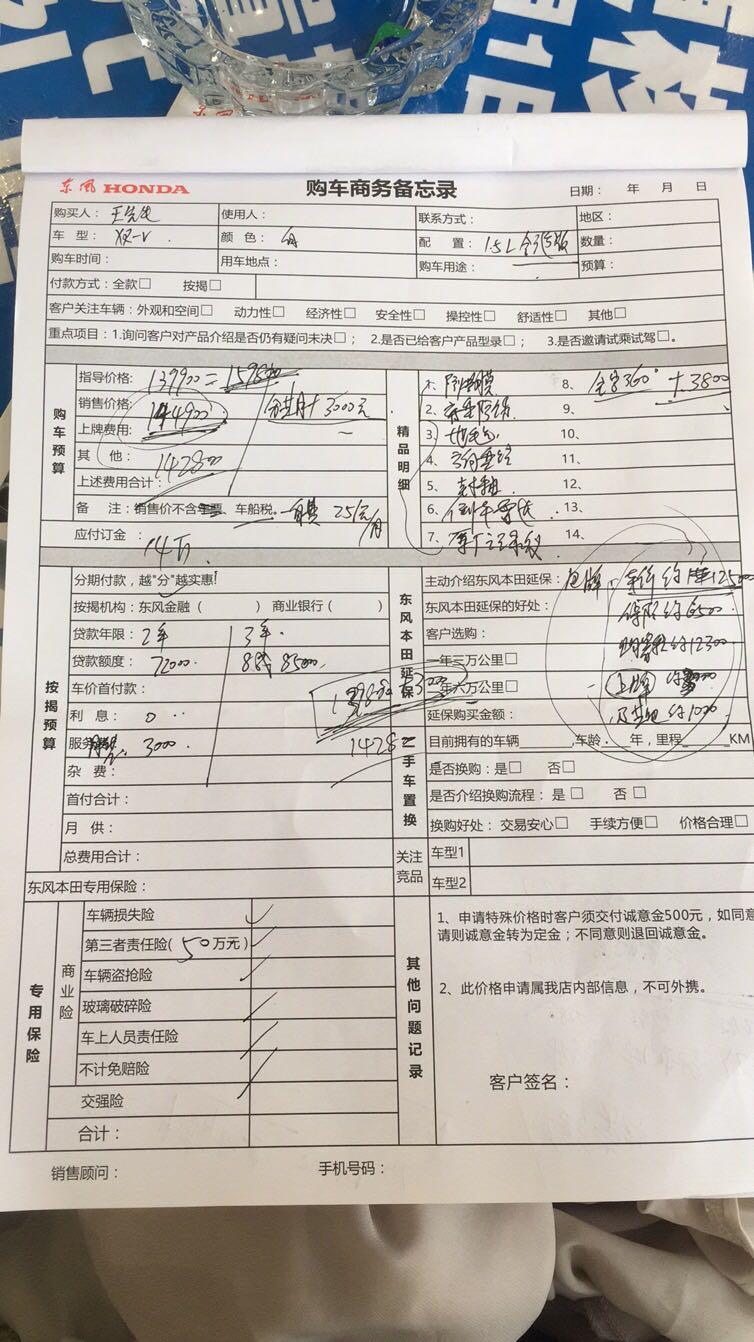 东风 HONDA
购车商务备忘录
日期： 年 月 日
购买人：王先生 使用人： 联系方式： 地区：
车 型：XR-V 颜 色：白 配 置：1.5L 数量：
购车时间： 用车地点： 购车用途： 预算：
付款方式：全款□ 按揭□
客户关注车辆：外观和空间□ 动力性□ 经济性□ 安全性□ 操控性□ 舒适性□ 其他□
重点项目：1.询问客户对产品介绍是否仍有疑问未决□； 2.是否已给客户产品型录□； 3.是否邀请试乘试驾□。
购车预算
指导价格：139900 = 159800
销售价格：144900 +3000元
上牌费用：
其 他：142800
上述费用合计：
备 注：销售价不含 、车船税。
应付订金：14万
精品明细
1、
2、
3、
4、
5、
6、
7、
8、 360° +3800
9、
10、
11、
12、
13、
14、
按揭预算
分期付款，越“分”越实惠！
按揭机构：东风金融（ ） 商业银行（ ）
贷款年限：2年 3年
贷款额度：72000 85000
车价首付款：
利 息：0
服务 3000
杂 费：
首付合计：
月 供：
总费用合计：
1428
东风本田延保
主动介绍东风本田延保：包牌：车价约125000
东风本田延保的好处：保险约6500
客户选购：购置税约12300
一年三万公里□
一年六万公里□ 上牌
延保购买金额： 约1000
二手车置换
目前拥有的车辆 ,车龄 年，里程 KM
是否换购：是□ 否□
是否介绍换购流程：是□ 否□
换购好处：交易安心□ 手续方便□ 价格合理□
关注竞品
车型1
车型2
东风本田专用保险：
专用保险
商业险
车辆损失险
第三者责任险(50万元)
车辆盗抢险
玻璃破碎险
车上人员责任险
不计免赔险
交强险
合计：
其他问题记录
1、申请特殊价格时客户须交付诚意金500元，如同意
请则诚意金转为定金；不同意则退回诚意金。
2、此价格申请属我店内部信息，不可外携。
客户签名：
销售顾问： 手机号码：